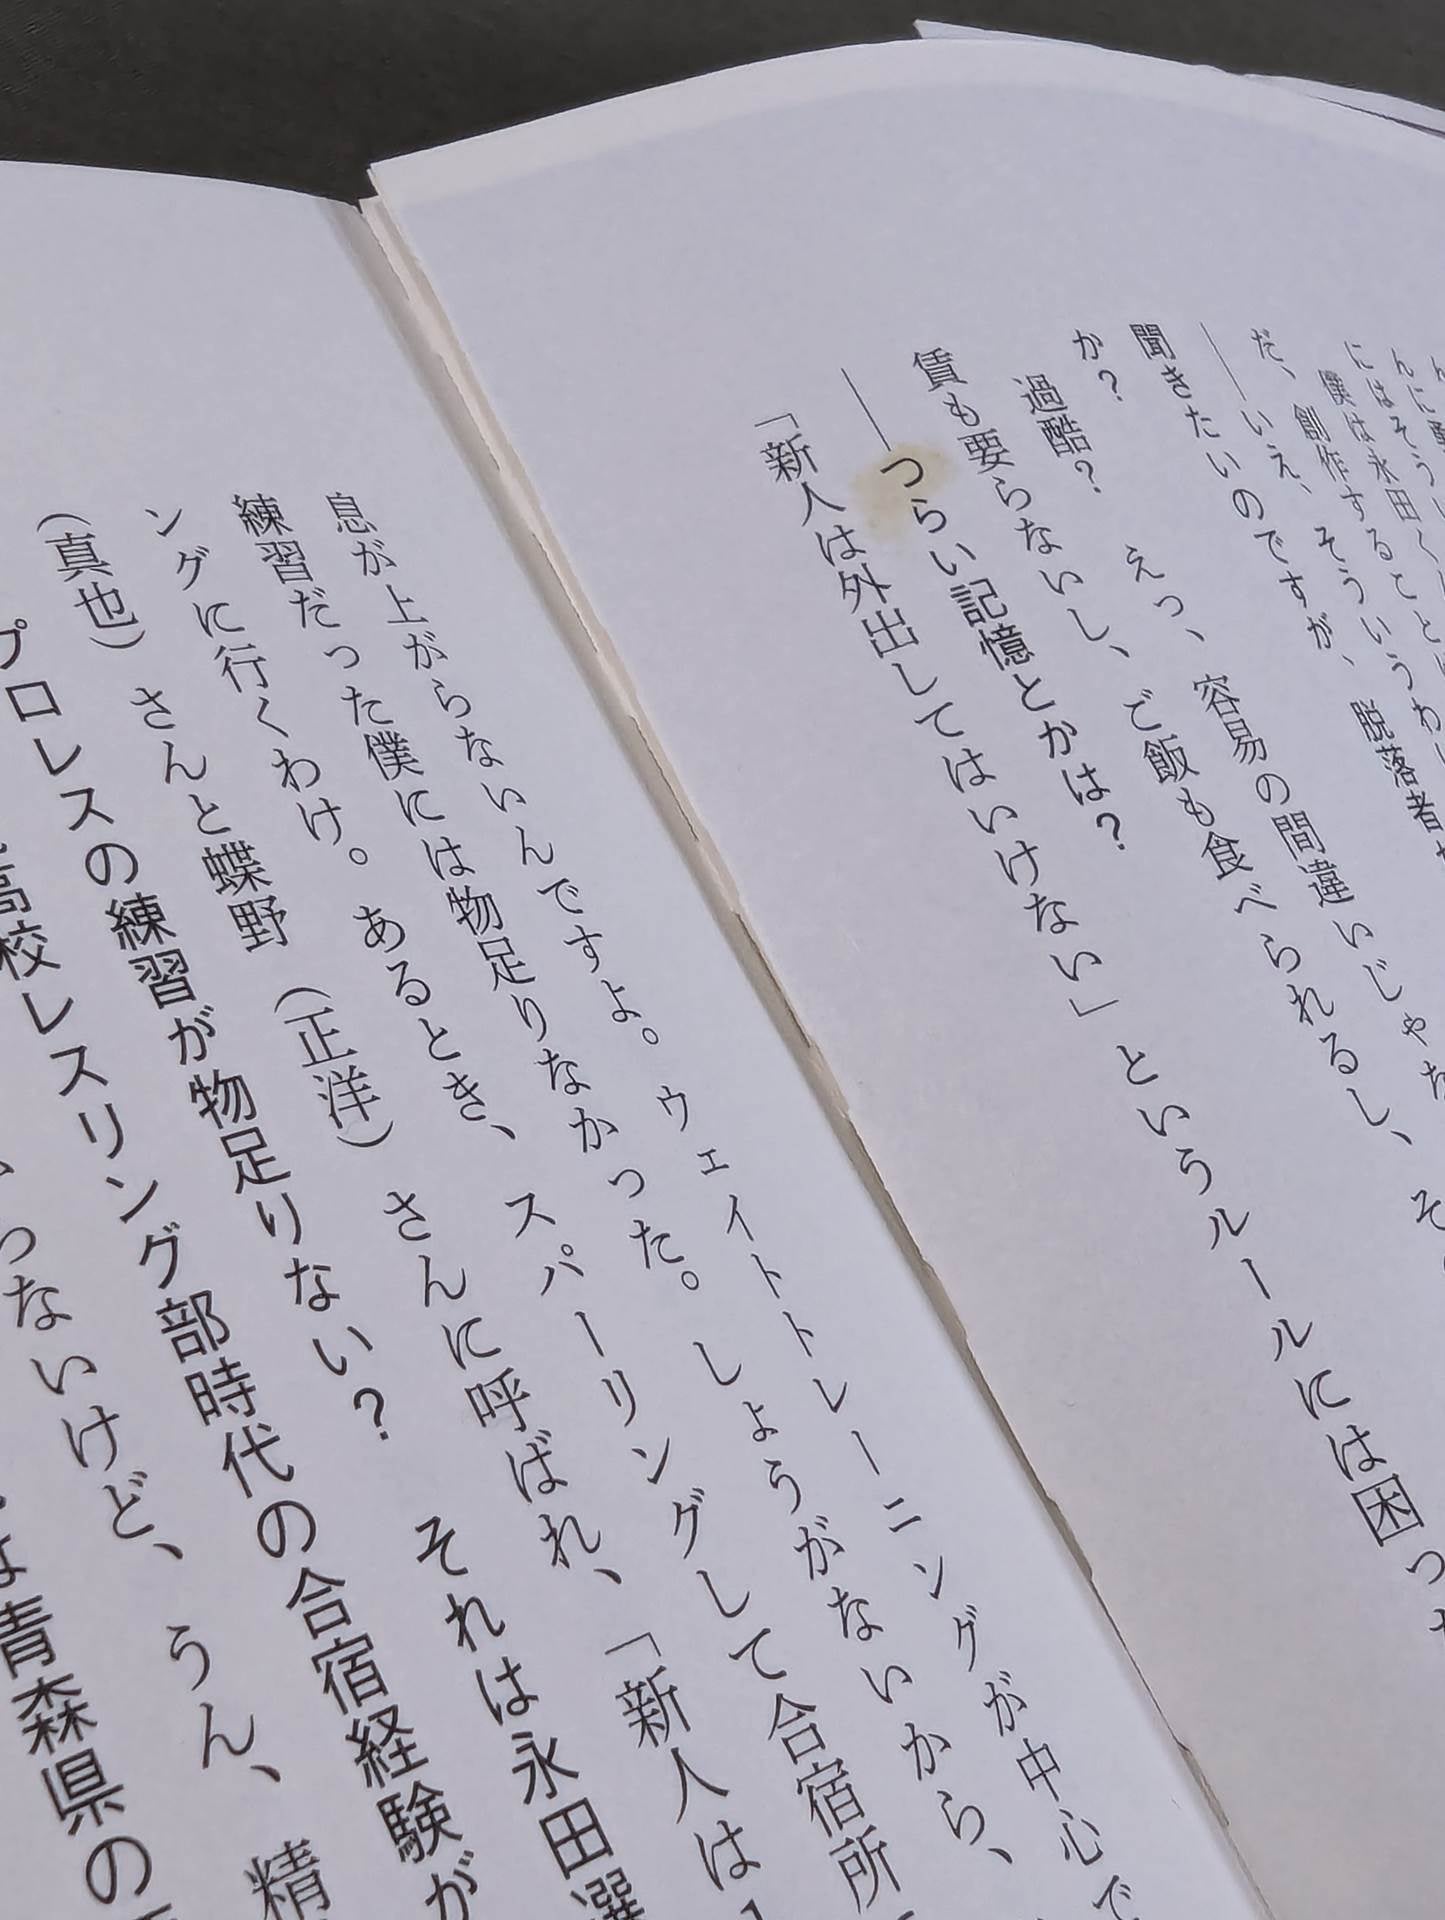 にはそうい
僕は永田くんことは
だ、創作するこというわ
――いえ、そういう
聞きたいのですが、脱落者
か？
過酷？　えっ、容易の間違いじゃな
賃も要らないし、ご飯も食べられるし、そ
――つらい記憶とかは？
「新人は外出してはいけない」というルールには困った
息が上がらないんですよ。ウェイトトレーニングが中心で
練習だった僕には物足りなかった。しょうがないから、
ングに行くわけ。あるとき、スパーリングして合宿所
（真也）さんと蝶野（正洋）さんに呼ばれ、「新人は
プロレスの練習が物足りない？　それは永田選
高校レスリング部時代の合宿経験が
らないけど、うん、精
は青森県の